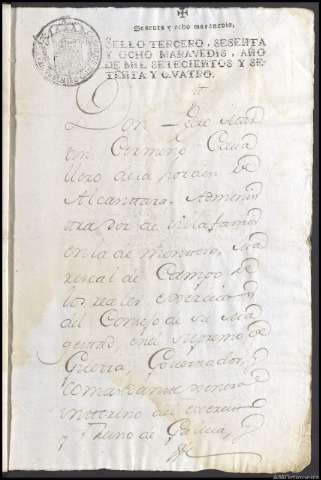 Sesenta y ocho maravedis.
SELLO TERCERO, SESENTA
Y OCHO MARAVEDIS, AÑO
DE MIL SETECIENTOS Y SE-
TENTA Y QVATRO.
Don Pedro Mar
tin Cermeño Cava
llero de la horden de
Alcantara, Adminis
trador de Villafames
en la de Montesa, Ma
riscal de Campo de
los reales exercitos
del Consejo de su Ma
gestad en el Supremo de
Guerra, Governador, y
Comandante General
interino del exercito
y Reino de Galicia, &